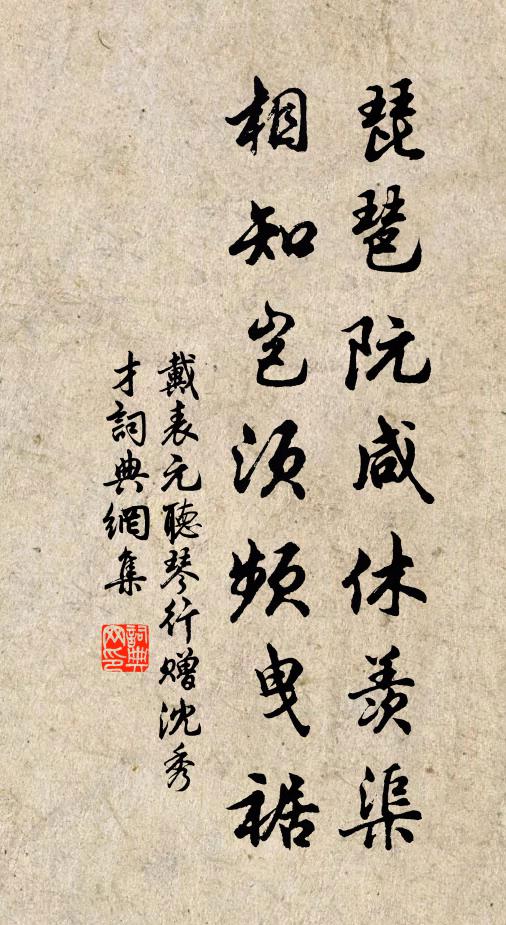 琵琶阮咸休羡渠
相知岂须频曳裾
戴表元聽琴行赠沈秀
才詞典網集
詞典
网印